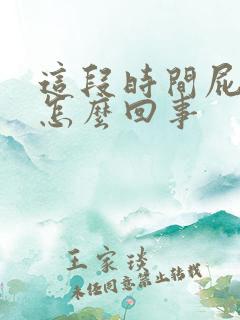 這段時間屁
怎麼回事
王家琰
未經同意禁止轉載